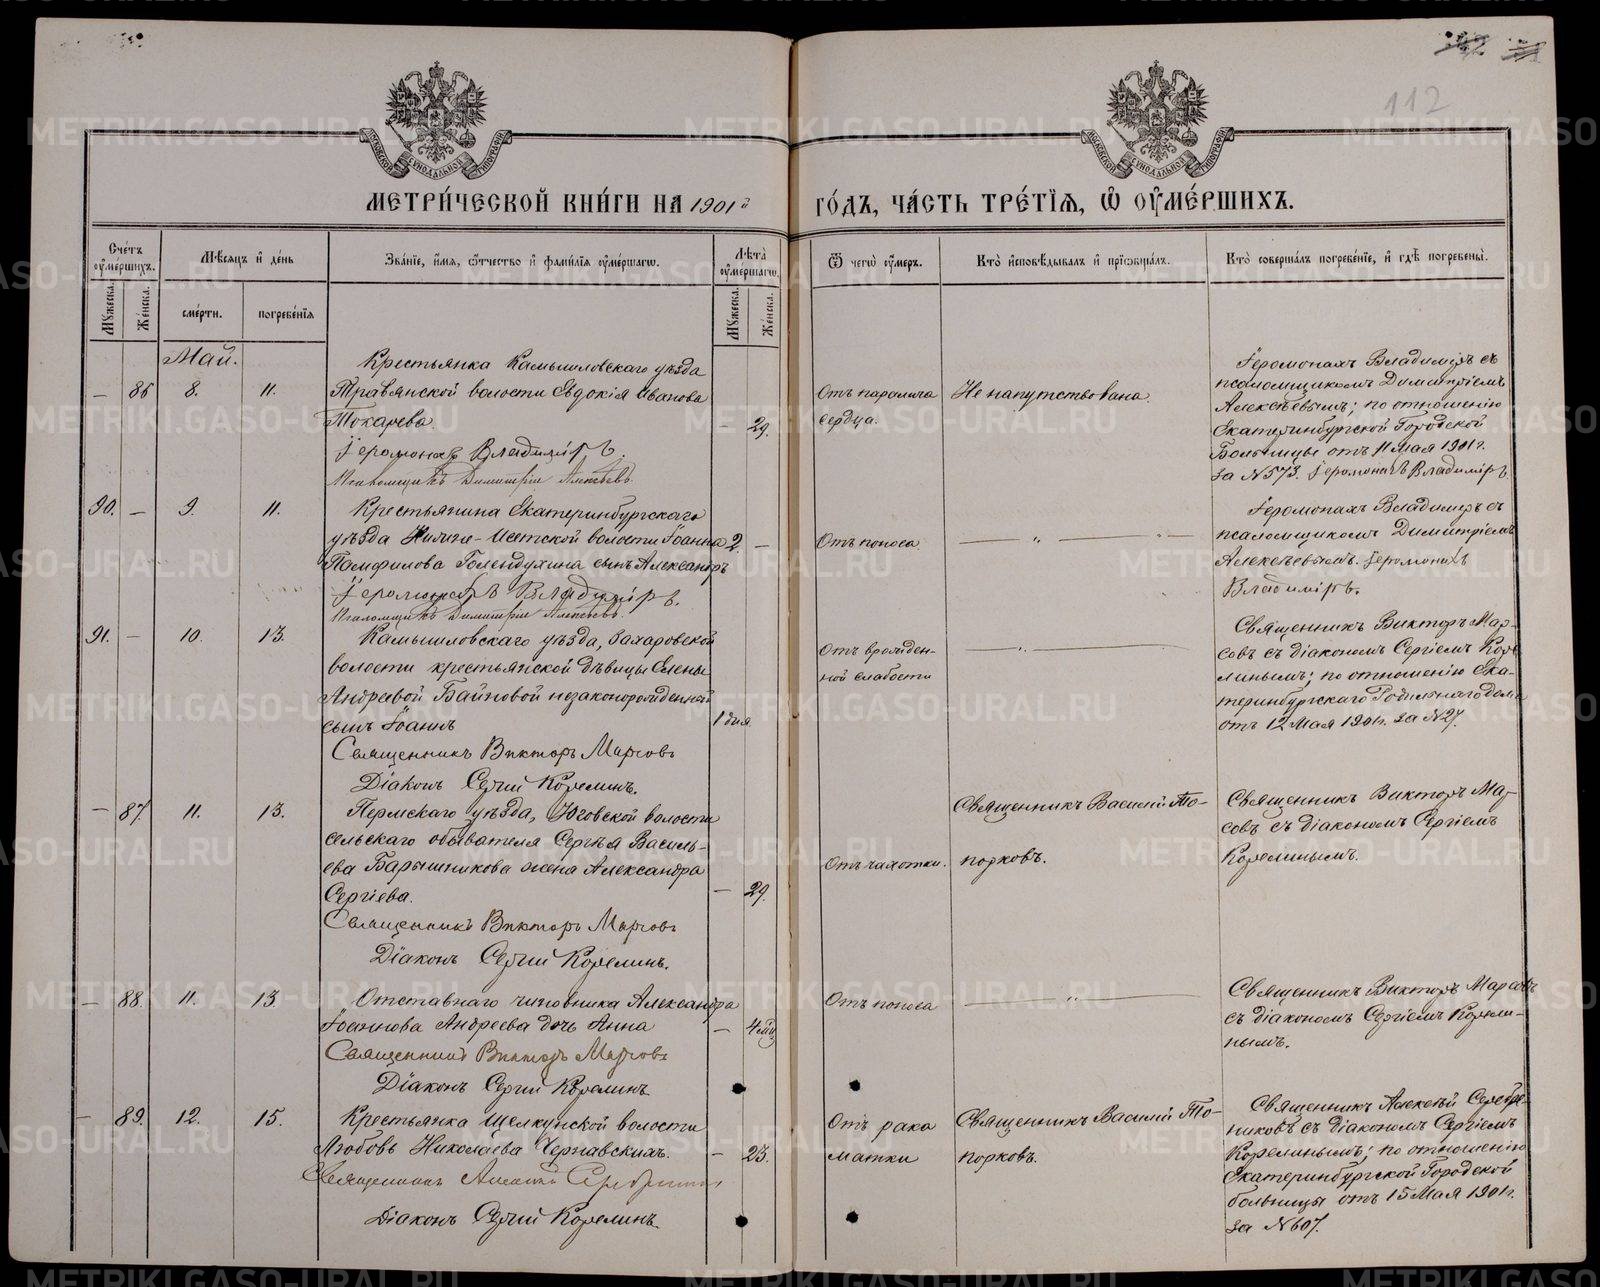 112
МОСКОВСКОЙ СУНОДАЛЬНОЙ ТИПОГРАФІИ
МОСКОВСКОЙ СУНОДАЛЬНОЙ ТИПОГРАФІИ
МЕТРИ́ЧЕСКОЙ КНИ́ГИ НА 1901й ГО́ДЪ, ЧА́СТЬ ТРЕ́ТІѦ, Ѽ ОУ҆МЕ́РШИХЪ.
Сче́тъ оу҆ме́ршихъ.
Мꙋ́жеска.
Же́нска.
Мѣ́сѧцъ и҆ де́нь
сме́рти.
погребе́нїѧ
Зва́нїе, и҆́мѧ, ѻ҆́тчество и҆ фами́лїѧ оу҆ме́ршагѡ.
Лѣ́та оу҆ме́ршагѡ.
Мꙋ́жеска.
Же́нска.
Ѿ чегѡ̀ оу҆́меръ.
Кто̀ и҆сповѣ́дывалъ и҆ прїѡбща́лъ.
Кто̀ соверша́лъ погребе́нїе, и҆ гдѣ̀ погребены̀.
Май.
— 86 8. 11.
Крестьянка Камышловскаго уѣзда
Травянской волости Евдокія Иванова
Токарева.
— 29.
Іеромонахъ Владиміръ.
Псаломщикъ Димитрій Алексѣевъ.
Отъ паралича
сердца.
Не напутствована
Іеромонахъ Владиміръ съ
псаломщикомъ Димитріемъ
Алексѣевымъ; по отношенію
Екатеринбургской Городской
Больницы отъ 11 Мая 1901 г.
за № 573. Іеромонахъ Владиміръ.
90. — 9. 11.
Крестьянина Екатеринбургскаго
уѣзда Нижне-Исетской волости Іоанна
Памфилова Голендухина сынъ Александръ
2. —
Іеромонахъ Владиміръ.
Псаломщикъ Димитрій Алексѣевъ.
Отъ поноса
— „ — „ —
Іеромонахъ Владиміръ съ
псаломщикомъ Димитріемъ
Алексѣевымъ. Іеромонахъ
Владиміръ.
91. — 10. 13.
Камышловскаго уѣзда, Захаровской
волости крестьянской дѣвицы Елены
Андреевой Баиновой незаконорожденный
сынъ Іоаннъ
1 дня.
Священникъ Викторъ Марсовъ
Діаконъ Сергій Корелинъ.
Отъ врожден-
ной слабости
— „ —
Священникъ Викторъ Мар-
совъ съ діакономъ Сергіемъ Коре-
линымъ; по отношенію Ека-
теринбургскаго Родильнаго дома
отъ 12 Мая 1901 г. за № 27.
— 87. 11. 13.
Пермскаго уѣзда, Юговской волости
сельскаго обывателя Сергѣя Василь-
ева Барышникова жена Александра
Сергіева.
— 29.
Священникъ Викторъ Марсовъ
Діаконъ Сергій Корелинъ.
Отъ чахотки.
Священникъ Василій То-
порковъ.
Священникъ Викторъ Мар-
совъ съ діакономъ Сергіемъ
Корелинымъ.
— 88. 11. 13.
Отставнаго чиновника Александра
Іоаннова Андреева дочь Анна
— 4 мѣс.
Священникъ Викторъ Марсовъ
Діаконъ Сергій Корелинъ.
Отъ поноса
— „ —
Священникъ Викторъ Марсовъ
съ діакономъ Сергіемъ Корели-
нымъ.
— 89. 12. 15.
Крестьянка Щелкунской волости
Любовь Николаева Чернавскихъ.
— 23.
Священникъ Алексій Серебренниковъ
Діаконъ Сергій Корелинъ.
Отъ рака
матки
Священникъ Василій То-
порковъ.
Священникъ Алексѣй Серебре-
никовъ съ діакономъ Сергіемъ
Корелинымъ; по отношенію
Екатеринбургской Городской
больницы отъ 15 Мая 1901 г.
за № 607.
METRIKI.GASO-URAL.RU